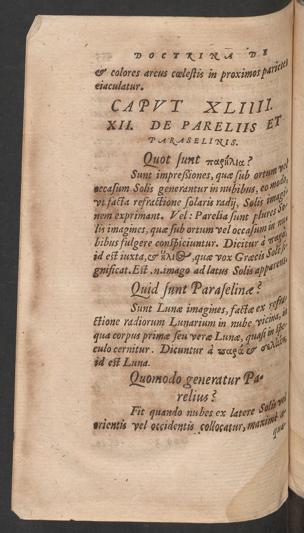 DOCTRINA DE
& colores arcus cœlestis in proximos parietes
eiaculatur.
CAPVT XLIIII.
XII. DE PARELIIS ET
PARASELINIS.
Quot sunt παρήλια?
Sunt impressiones, quæ sub ortum vel
occasum Solis generantur in nubibus, eo modo,
vt facta refractione solaris radij, Solis imagi-
nem exprimant. Vel: Parelia sunt plures So-
lis imagines, quæ sub ortum vel occasum in nu-
bibus fulgere conspiciuntur. Dicitur à παρὰ
id est iuxta, & ἥλιος, quæ vox Græcis Solē si-
gnificat. Est .n. imago ad latus Solis apparens.
Quid sunt Paraselinæ?
Sunt Lunæ imagines, factæ ex refra-
ctione radiorum Lunarium in nube vicina, in
qua corpus primæ seu veræ Lunæ, quasi in spe-
culo cernitur. Dicuntur à παρὰ & σελήνη,
id est Luna.
Quomodo generatur Pa-
relius?
Fit quando nubes ex latere Solis vel
orientis vel occidentis collocatur, maximè